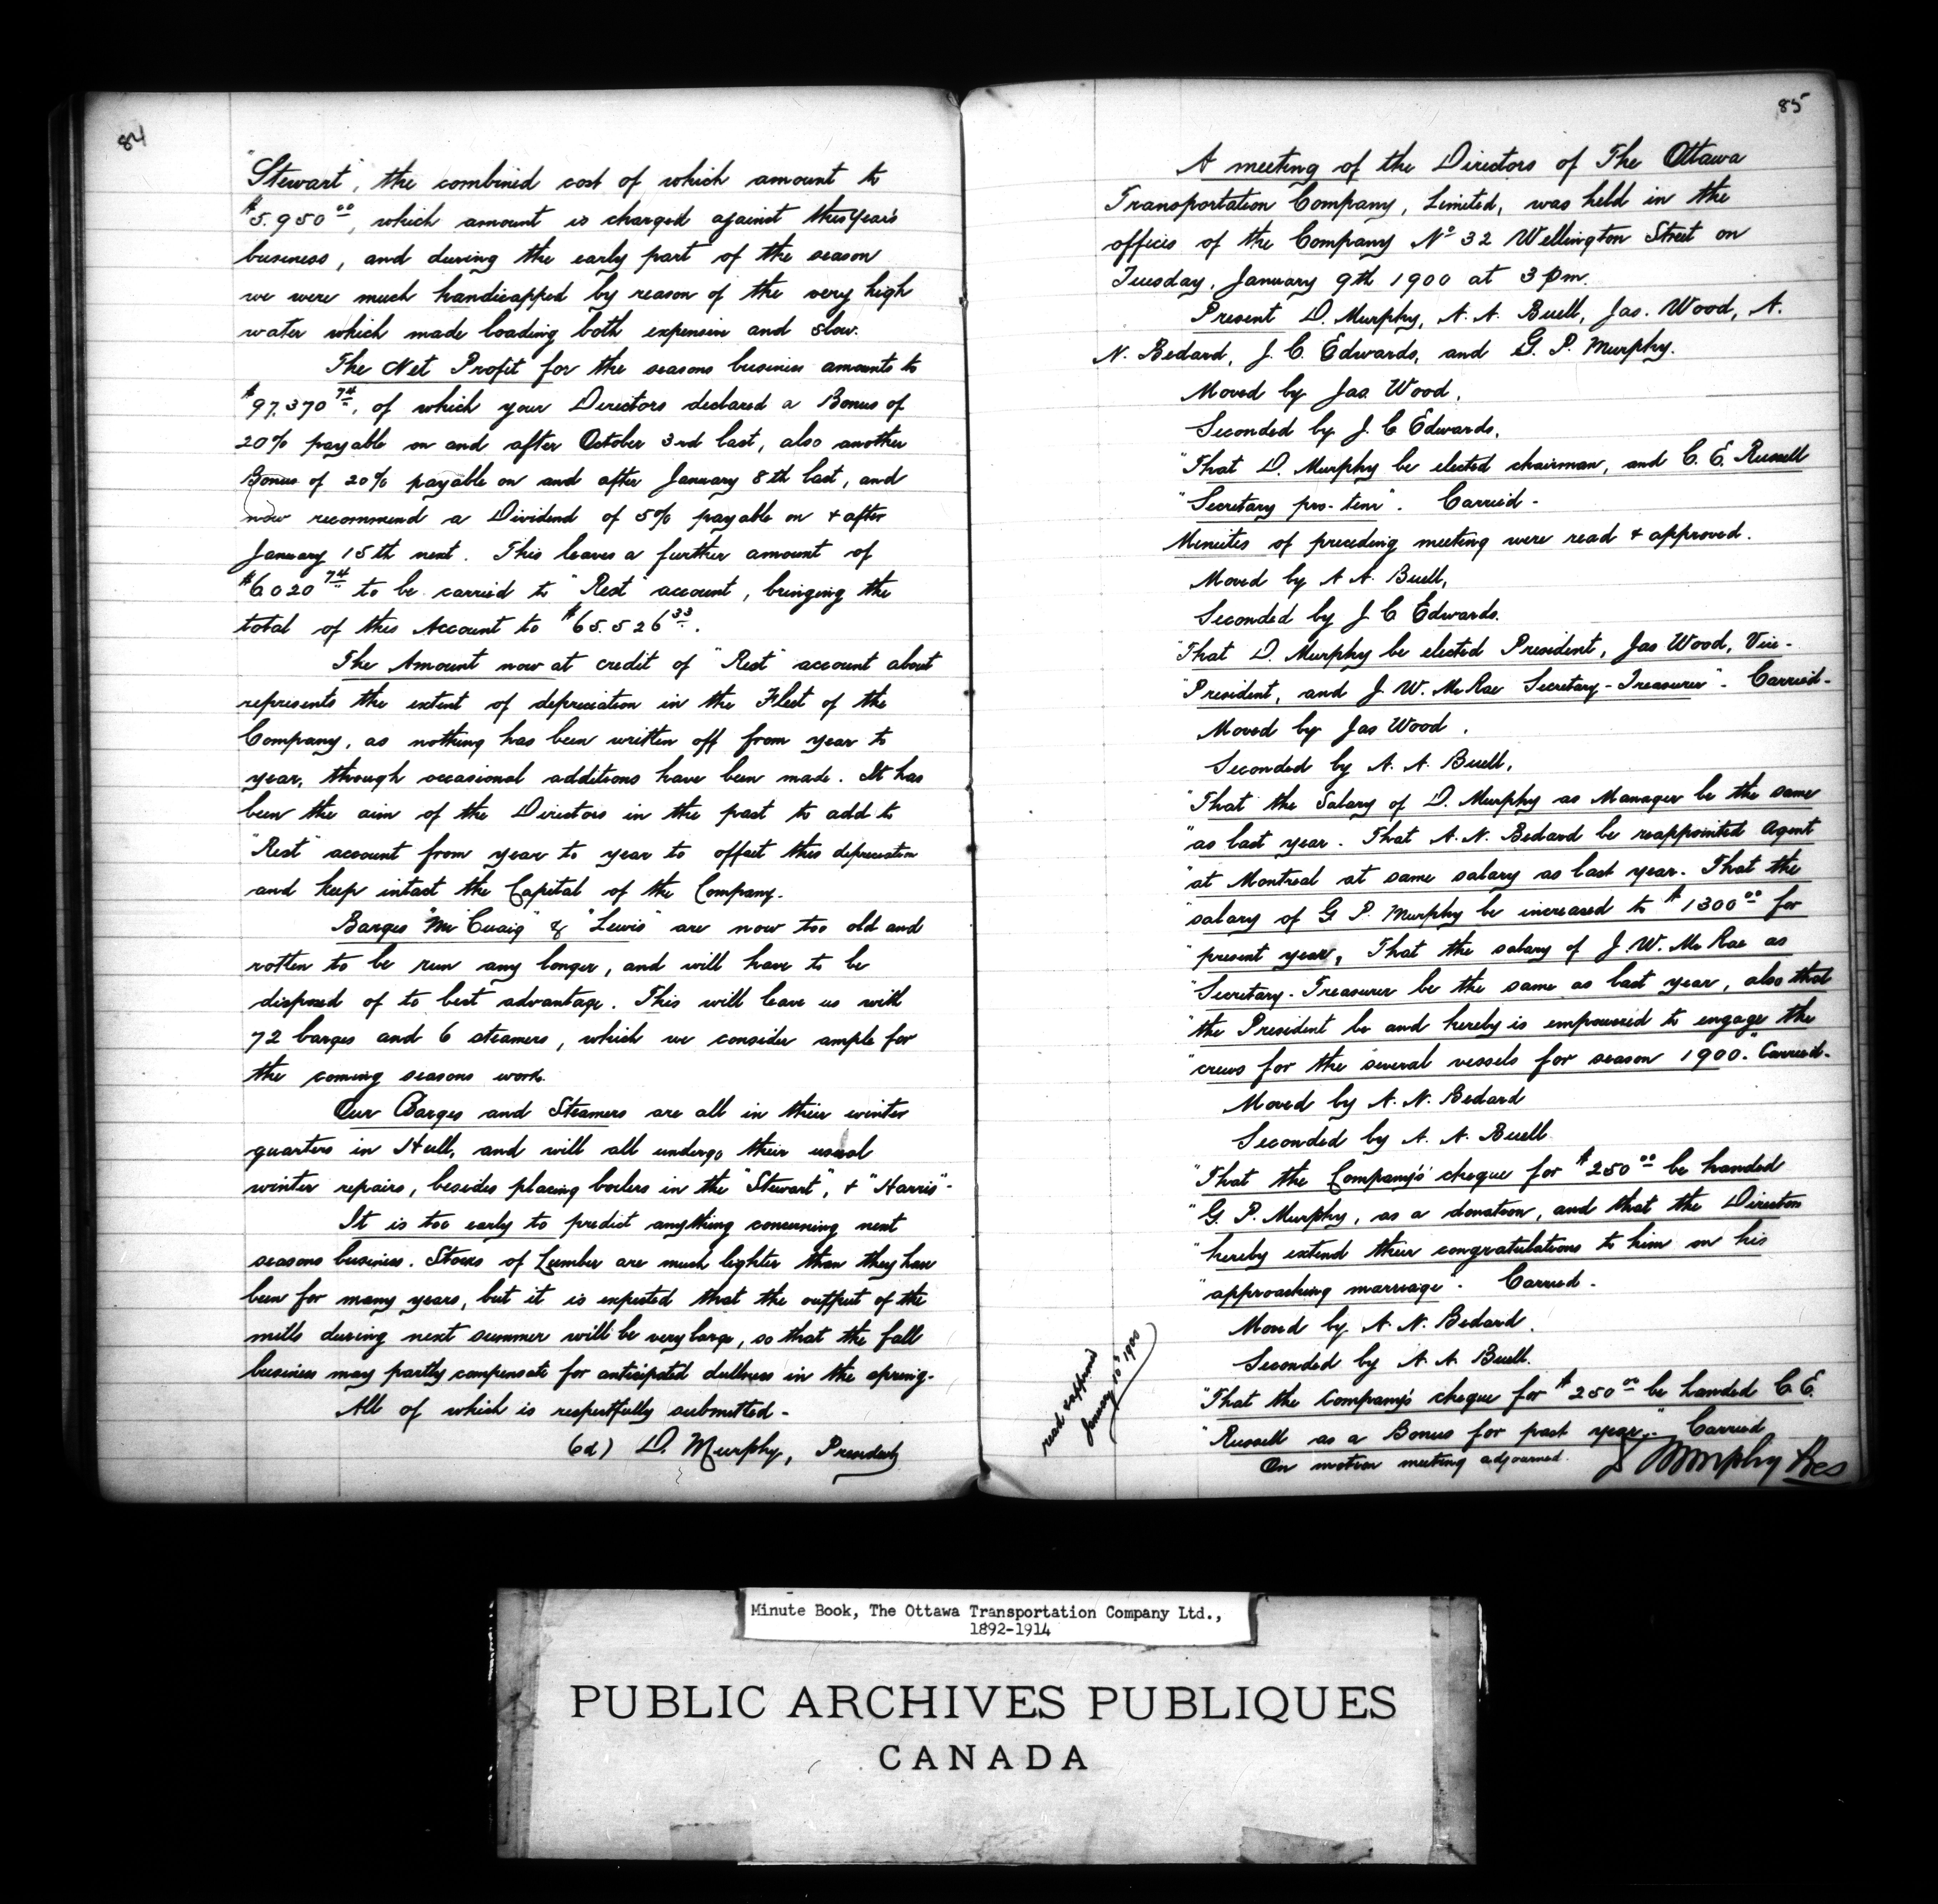 84
"Stewart", the combined cost of which amount to
$5.950 00, which amount is charged against this Year's
business, and during the early part of the season
we were much handicapped by reason of the very high
water which made loading both expensive and slow.
The Net Profit for the seasons business amounts to
$97.370 74, of which your Directors declared a Bonus of
20% payable on and after October 3rd last, also another
Bonus of 20% payable on and after January 8th last, and
now recommend a Dividend of 5% payable on + after
January 15th next. This leaves a further amount of
$6020 74 to be carried to "Rest" account, bringing the
total of this Account to $65.526 33.
The Amount now at credit of "Rest" account about
represents the extent of depreciation in the Fleet of the
Company, as nothing has been written off from year to
year, though occasional additions have been made. It has
been the aim of the Directors in the past to add to
"Rest" account from year to year to offset this depreciation
and keep intact the Capital of the Company.
Barges "McCuaig" & "Lewis" are now too old and
rotten to be run any longer, and will have to be
disposed of to best advantage. This will leave us with
72 barges and 6 steamers, which we consider ample for
the coming seasons work.
Our Barges and Steamers are all in their winter
quarters in Hull, and will all undergo their usual
winter repairs, besides placing boilers in the "Stewart", + "Harris"-
It is too early to predict anything concerning next
seasons business. Stocks of Lumber are much lighter than they have
been for many years, but it is expected that the output of the
mills during next summer will be very large, so that the fall
business may partly compensate for anticipated dullness in the spring.
All of which is respectfully submitted -
(sd) D. Murphy, President
85
A meeting of the Directors of The Ottawa
Transportation Company, Limited, was held in the
offices of the Company No 32 Wellington Street on
Tuesday, January 9th 1900 at 3 pm.
Present D. Murphy, A. A. Buell, Jas. Wood, A.
N. Bedard, J. C. Edwards, and G. P. Murphy.
Moved by Jas. Wood,
Seconded by J. C Edwards,
"That D. Murphy be elected chairman, and C. E. Russell
"Secretary pro-tem". Carried -
Minutes of preceding meeting were read + approved.
Moved by A A. Buell,
Seconded by J C Edwards.
"That D. Murphy be elected President, Jas Wood, Vice-
"President, and J. W. McRae Secretary-Treasurer". Carried-
Moved by Jas Wood,
Seconded by A. A. Buell,
"That the Salary of D. Murphy as Manager be the same
"as last year. That A. N. Bedard be reappointed Agent
"at Montreal at same salary as last year. That the
"salary of G P. Murphy be increased to $1300 00 for
"present year, That the salary of J. W. McRae as
"Secretary-Treasurer be the same as last year, also that
"the President be and hereby is empowered to engage the
"crews for the several vessels for season 1900." Carried-
Moved by A. N. Bedard
Seconded by A. A. Buell
"That the Company's cheque for $250 00 be handed
"G. P. Murphy, as a donation, and that the Directors
"hereby extend their congratulations to him on his
"approaching marriage". Carried -
Moved by A. N. Bedard.
Seconded by A A Buell.
"That the Company's cheque for $250 00 be handed C. E.
"Russell as a Bonus for past year." Carried
On motion meeting adjourned.
D Murphy Pres
read + approved
January 10th 1900
Minute Book, The Ottawa Transportation Company Ltd.,
1892-1914
PUBLIC ARCHIVES PUBLIQUES
CANADA